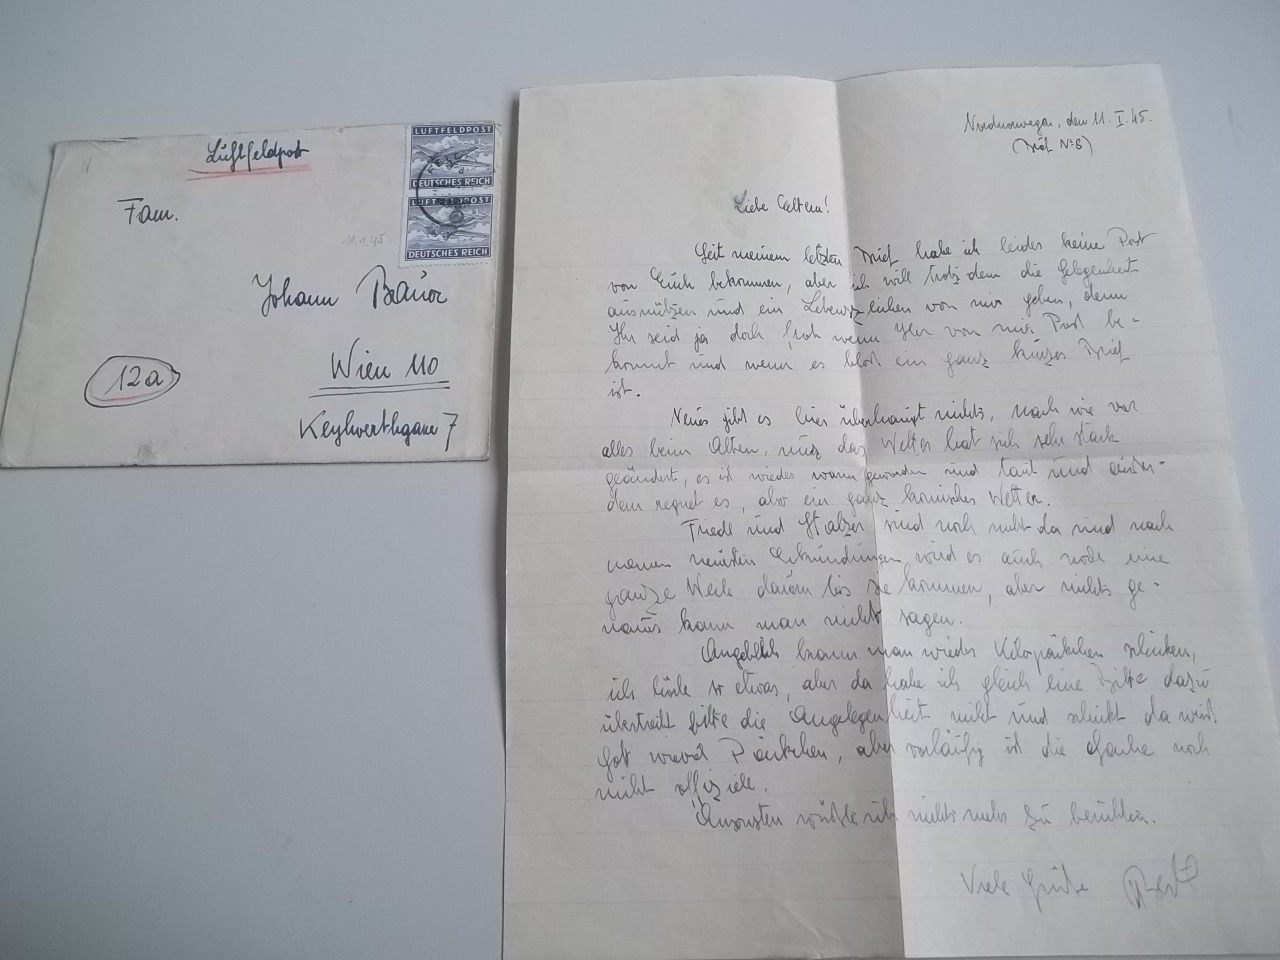 Luftfeldpost
LUFTFELDPOST
DEUTSCHES REICH
LUFTFELDPOST
DEUTSCHES REICH
Fam.
Johann Bräuer
Wien 110
Keylwerthgasse 7
12a
Nordnorwegen, den 11. I. 45.
(Brief No 8)
Liebe Eltern!
Seit meinem letzten Brief habe ich leider keine Post
von Euch bekommen, aber ich will trotz dem die Gelegenheit
ausnützen und ein Lebenszeichen von mir geben, denn
Ihr seid ja doch froh wenn Ihr von mir Post be-
kommt und wenn es bloß ein ganz kurzer Brief
ist.
Neues gibt es hier überhaupt nichts, nach wie vor
alles beim Alten, nur das Wetter hat sich sehr stark
geändert, es ist wieder warm geworden und taut und außer-
dem regnet es, also ein ganz komisches Wetter.
Friedl und sind noch nicht da und nach
neuesten Erkundungen wird es auch noch eine
ganze Weile dauern bis sie kommen, aber nichts ge-
naues kann man nicht sagen.
Angeblich kann man wieder Kilopäckchen schicken,
ich hörte so etwas, aber da habe ich gleich eine Bitte dazu
übertreibt bitte die Angelegenheit nicht und schickt da weiß
Gott wieviel Päckchen, aber vorläufig ist die Sache noch
nicht offiziell.
Ansonsten wüßte ich nichts mehr zu berichten.
Viele Grüße